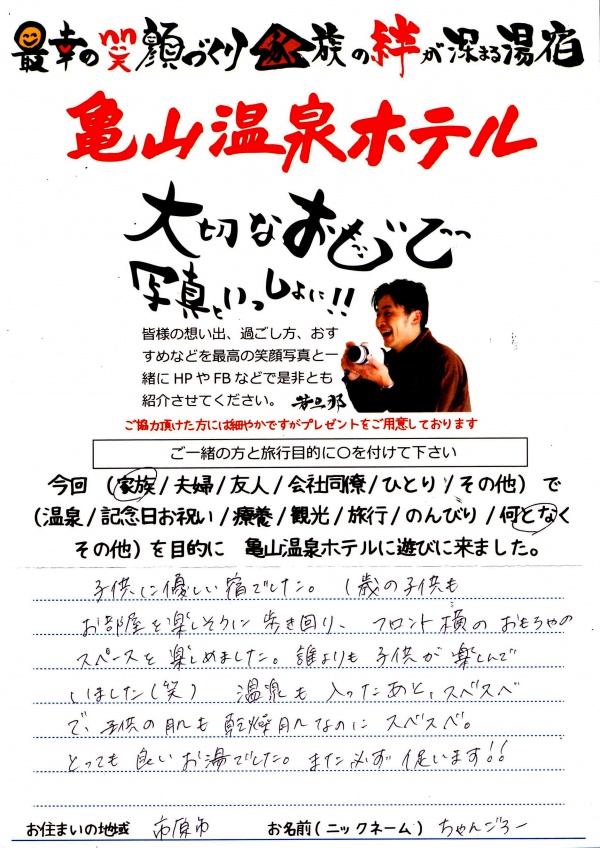 最幸の笑顔づくり家族の絆が深まる湯宿
亀山温泉ホテル
大切なおもいで
写真といっしょに!!
皆様の想い出、過ごし方、おす
すめなどを最高の笑顔写真と一
緒に HP や FB などで是非とも
紹介させてください。 若旦那
ご協力頂けた方には細やかですがプレゼントをご用意しております
ご一緒の方と旅行目的に〇を付けて下さい
今回 (家族/夫婦/友人/会社同僚/ひとり/その他) で
(温泉/記念日お祝い/療養/観光/旅行/のんびり/何となく
その他) を目的に 亀山温泉ホテルに遊びに来ました。
子供に優しい宿でした。 1歳の子供も
お部屋を楽しそうに歩き回り、フロント横のおもちゃの
スペースを楽しめました。誰よりも子供が楽しんで
いました(笑) 温泉も入ったあと、スベスベ
で、子供の肌も乾燥肌なのにスベスベ。
とっても良いお湯でした。また必ず 促います!!
お住まいの地域 市原市 お名前(ニックネーム) ちゃんごろー